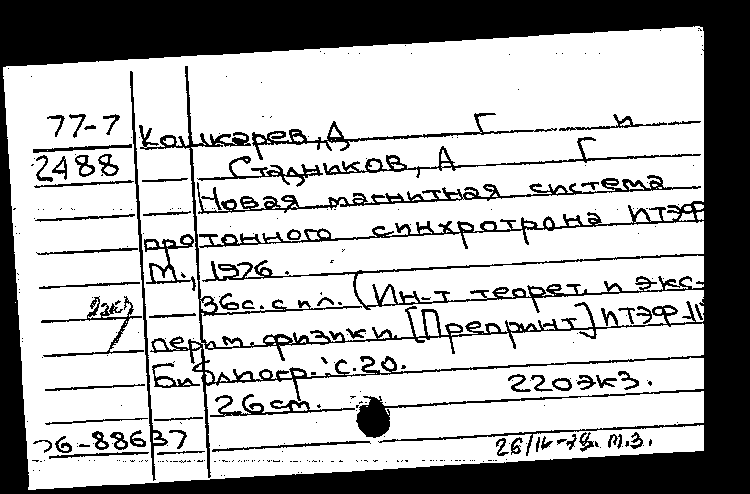 77-7 Кошкарев, Д Г и
2488 Стадников, А Г
Новая магнитная система
протонного синхротрона ИТЭФ
М., 1976.
36с. с ил. (Ин-т теорет. и экс-
2экз
перим. физики. [Препринт] ИТЭФ
Библиогр.: с.20.
220экз.
26 ст.
76-88637
26/IV-78. т.з.